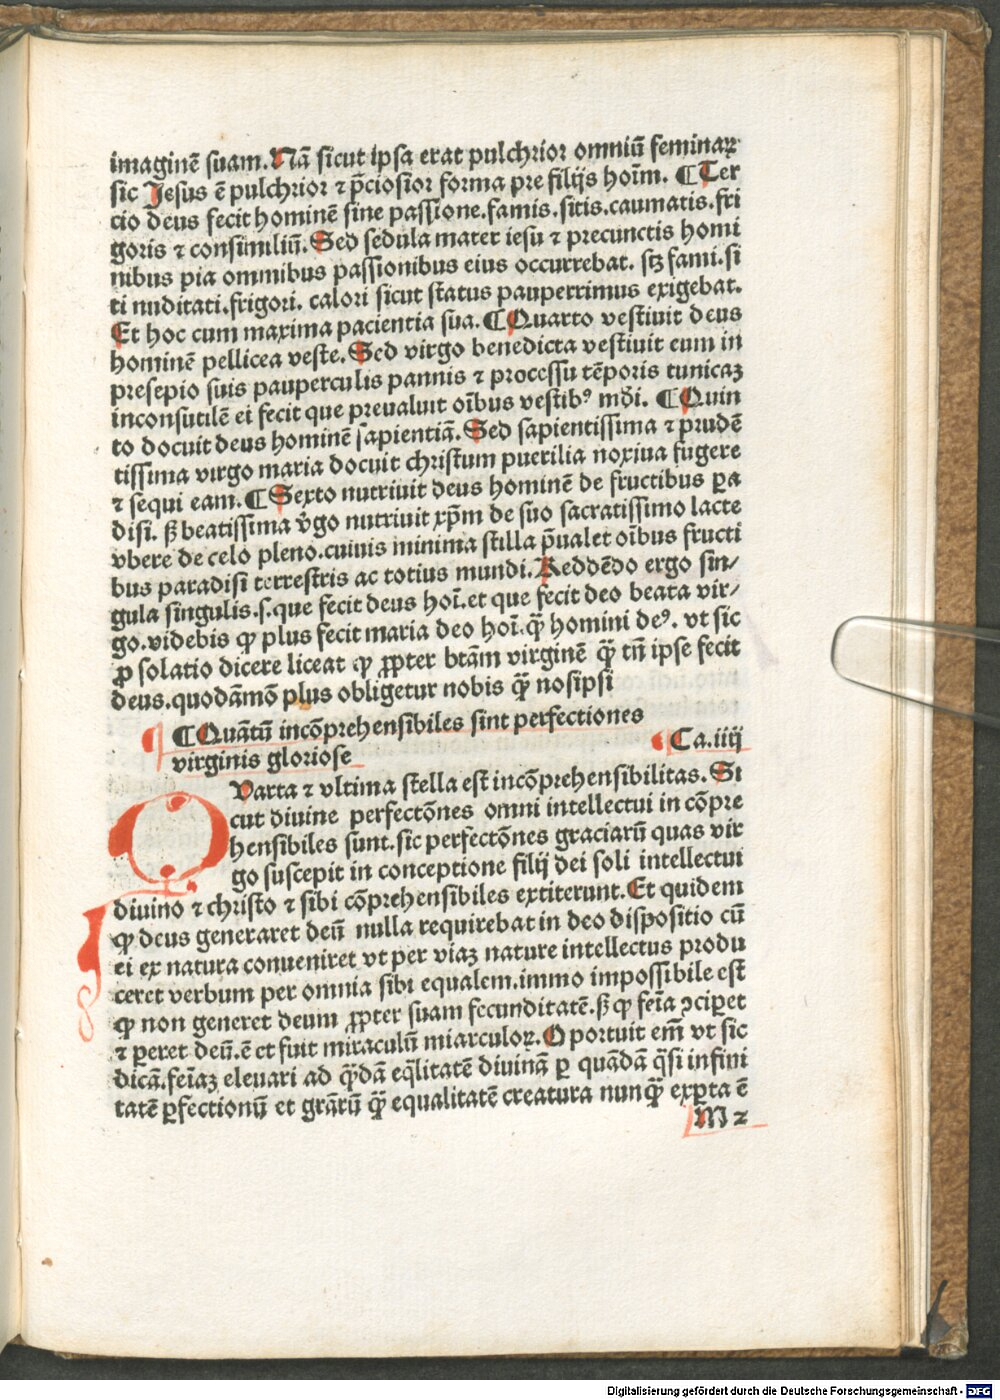 imaginē suam. Nā sicut ipsa erat pulchrior omniū feminaꝝ
sic Jesus ē pulchrior ⁊ p̄ciosior forma pre filijs hoīm. ¶ Ter
cio deus fecit hominē sine passione. famis. sitis. caumatis. fri
goris ⁊ consimiliū. Sed sedula mater iesu ⁊ precunctis homi
nibus pia omnibus passionibus eius occurrebat. sꝫ fami. si
ti nuditati. frigori. calori sicut status pauperrimus exigebat.
Et hoc cum maxima pacientia sua. ¶ Quarto vestiuit deus
hominē pellicea veste. Sed virgo benedicta vestiuit eum in
presepio suis pauperculis pannis ⁊ processu tēporis tunicaꝫ
inconsutilē ei fecit que preualuit oībus vestibꝰ mūdi. ¶ Quin
to docuit deus hominē sapientiā. Sed sapientissima ⁊ prudē
tissima virgo maria docuit christum puerilia noxiua fugere
⁊ sequi eam. ¶ Sexto nutriuit deus hominē de fructibus ꝑa
disi. sꝫ beatissima v̄go nutriuit xp̄m de suo sacratissimo lacte
vbere de celo pleno. cuiuis minima stilla p̄ualet oībus fructi
bus paradisi terrestris ac totius mundi. Reddēdo ergo sin⸗
gula singulis. s. que fecit deus hoī. et que fecit deo beata vir⸗
go. videbis ꝙ plus fecit maria deo hoī. q̄ꝫ homini deꝰ. vt sic
ꝓ solatio dicere liceat ꝙ ꝓpter btām virginē q̄ꝫ tn̄ ipse fecit
deus. quodāmō plus obligetur nobis q̄ꝫ nosipsi
¶ Quātū incōprehensibiles sint perfectiones
virginis gloriose ¶ Ca. iiij
QVarta ⁊ vltima stella est incōprehensibilitas. Si
cut diuine perfectōnes omni intellectui in cōpre
hensibiles sunt. sic perfectōnes graciarū quas vir
go suscepit in conceptione filij dei soli intellectui
diuino ⁊ christo ⁊ sibi cōprehensibiles extiterunt. Et quidem
ꝙ deus generaret deū nulla requirebat in deo dispositio cū
ei ex natura conueniret vt per viaꝫ nature intellectus produ
ceret verbum per omnia sibi equalem. immo impossibile est
ꝙ non generet deum ꝓpter suam fecunditatē. sꝫ ꝙ feīa ꝯciperet
⁊ ꝑeret deū. ē et fuit miraculū miarculoꝝ. Oportuit em̄ vt sic
dicā. feīaꝫ eleuari ad q̄ꝫdā eq̄litatē diuinā ꝑ quādā q̄si infini
tatē ꝑfectionū et grārū q̄ꝫ equalitatē creatura nunq̄ꝫ exꝑta ē
M 2
Digitalisierung gefördert durch die Deutsche Forschungsgemeinschaft - DFG